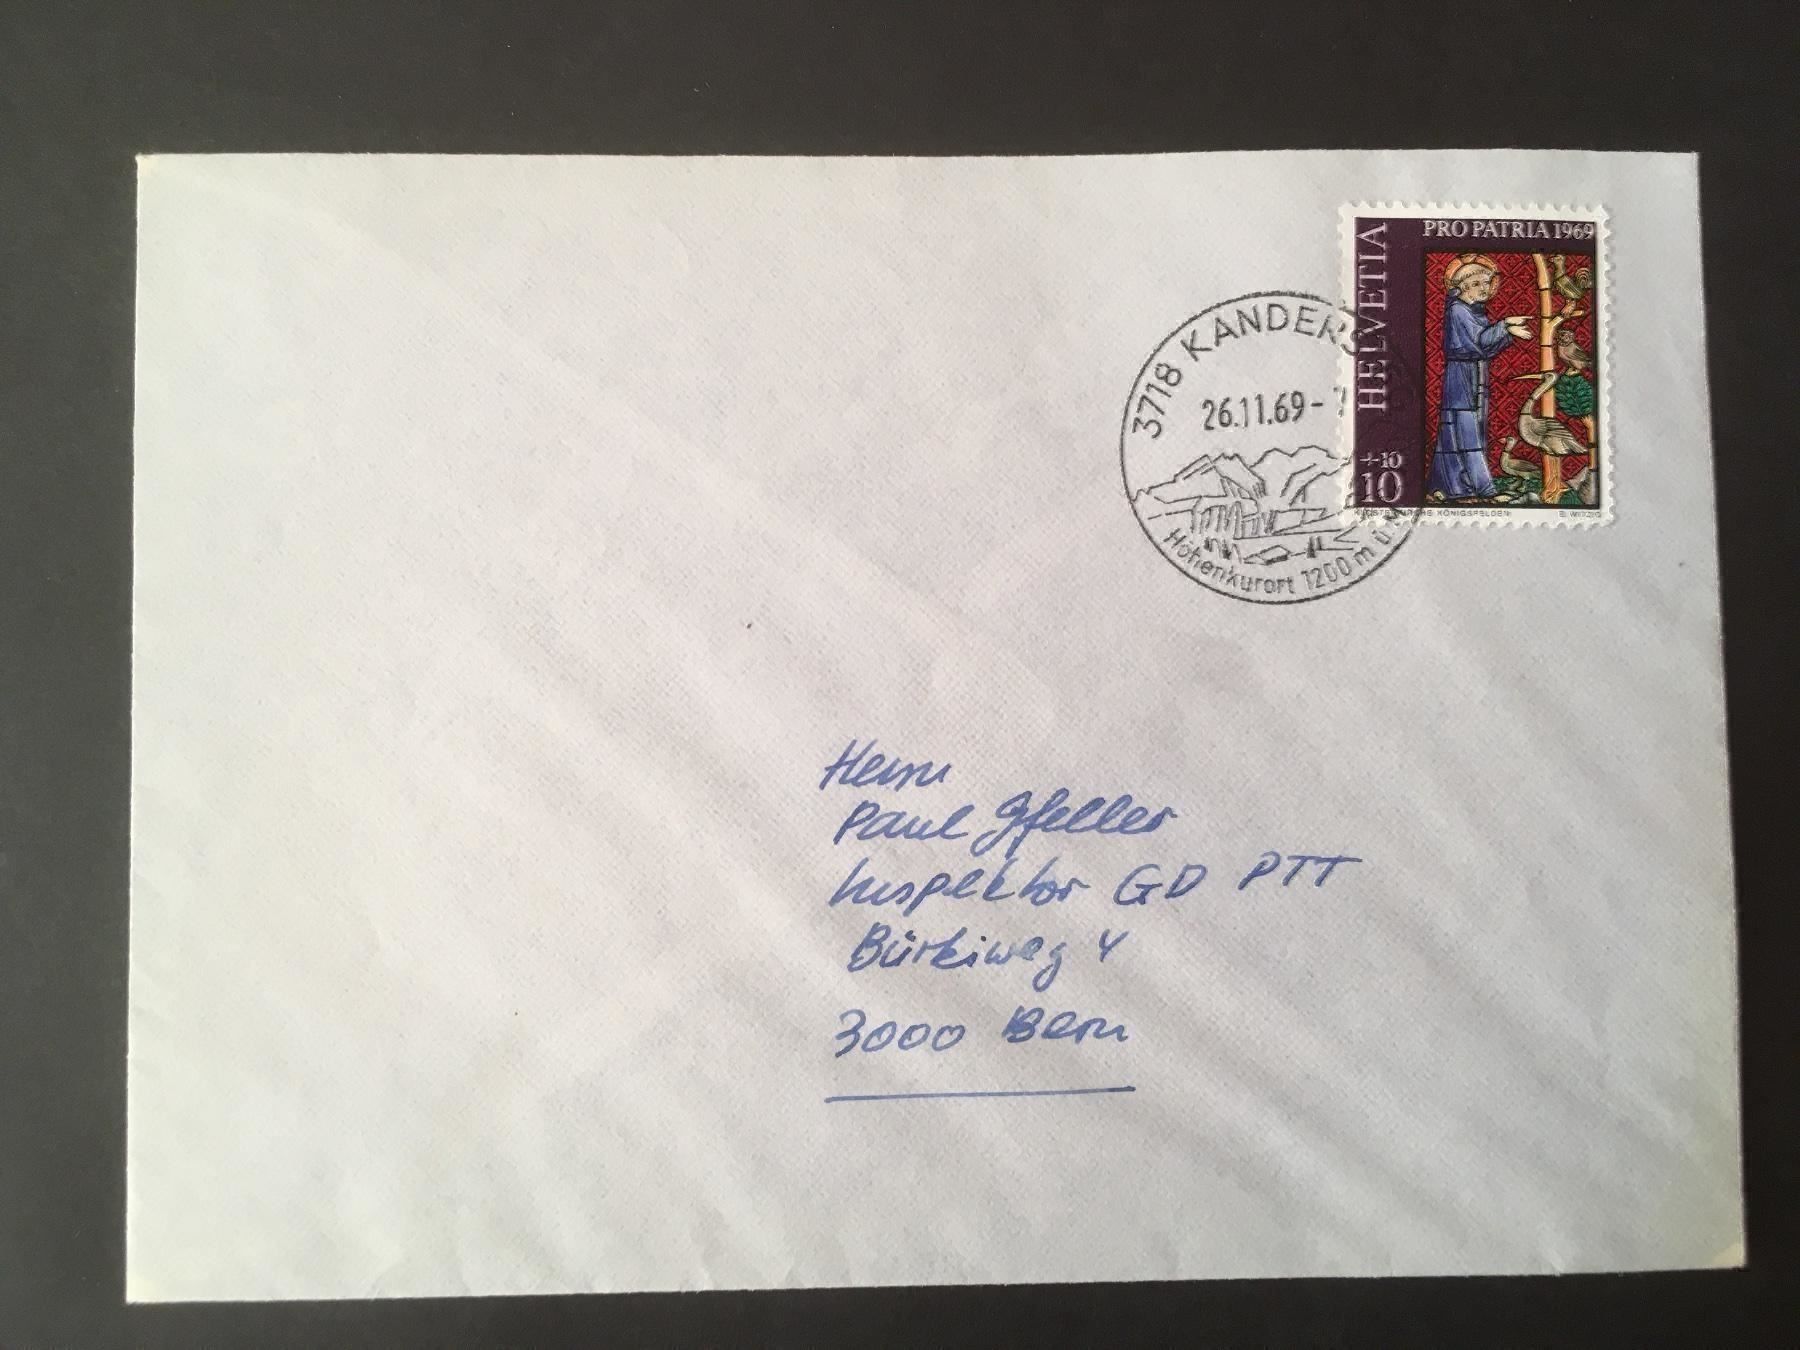 PRO PATRIA 1969
HELVETIA
+10
10
KÖNIGSFELDEN
3718 KANDERS
26.11.69-7
Höhenkurort 1200 m ü. M
Herrn
Paul Gfeller
Inspektor GD PTT
Bürkiweg 4
3000 Bern